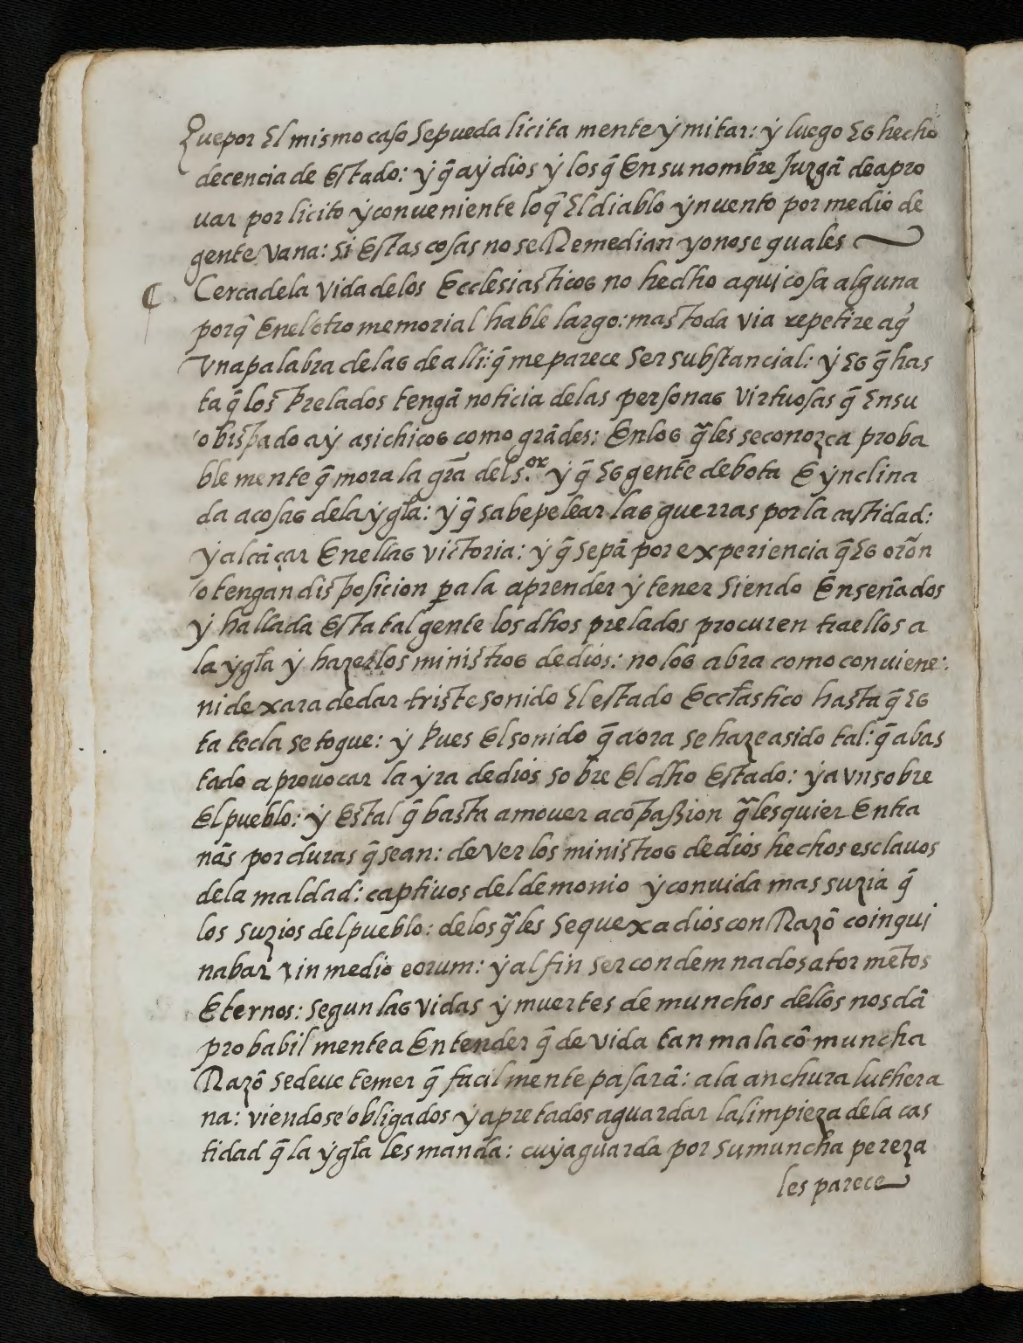 Que por El mismo caso se pueda licita mente ÿ mitar: ÿ luego Es hecho
decencia de Estado: ÿ q̃ aÿ dios ÿ los q̃ En su nombre Juzgã de apro
uar por licito ÿ conueniente lo q̃ El diablo ÿnuento por medio de
gente vana: si Estas cosas no se Remedian yo no se quales
₵ Cerca de la vida de los Ecclesiasticos no hecho aqui cosa alguna
porq̃ En el otro memorial hable largo: mas toda via repetire aq̃
Vna palabra de las de alli: q̃ me parece ser substancial: ÿ Es q̃ has
ta q̃ los Prelados tengã noticia de las personas virtuosas q̃ En su
obispado aÿ asi chicos como grãdes: En los q̃les se conozca proba
ble mente q̃ mora la gr̃a del s.or ÿ q̃ Es gente debota E ÿnclina
da a cosas de la ÿgľa: ÿ q̃ sabe pelear las guerras por la castidad:
ÿ alcãçar En ellas victoria: ÿ q̃ sepã por experiencia q̃ Es orõn
o tengan disposicion p̱a la aprender ÿ tener siendo Enseñados
ÿ hallada Esta tal gente los dhos prelados procuren traellos a
la ÿgľa ÿ hazerlos ministros de dios: no los abra como conuiene:
ni dexara de dar triste sonido El estado Eccľastico hasta q̃ Es
ta tecla se toque: ÿ Pues El sonido q̃ aora se haze a sido tal: q̃ a bas
tado a prouocar la ÿra de dios sobre El dho Estado: ÿ a vn sobre
El pueblo: ÿ Es tal q̃ basta a mouer a cõpassion q̃lesquier Entra
nãs por duras q̃ sean: de ver los ministros de dios hechos esclauos
de la maldad: captiuos del demonio ÿ con vida mas suzia q̃
los suzios del pueblo: de los q̃les se quexa dios con Razõ coinqui
nabar in medio eorum: ÿ al fin ser condemnados a tormẽtos
Eternos: segun las vidas ÿ muertes de munchos dellos nos dã
probabil mente a Entender q̃ de vida tan mala cõ muncha
Razõ se deue temer q̃ facil mente pasarã: a la anchura luthera
na: viendose obligados ÿ apretados a guardar la limpieza de la cas
tidad q̃ la ÿgľa les manda: cuÿa guarda por su muncha pereza
les parece